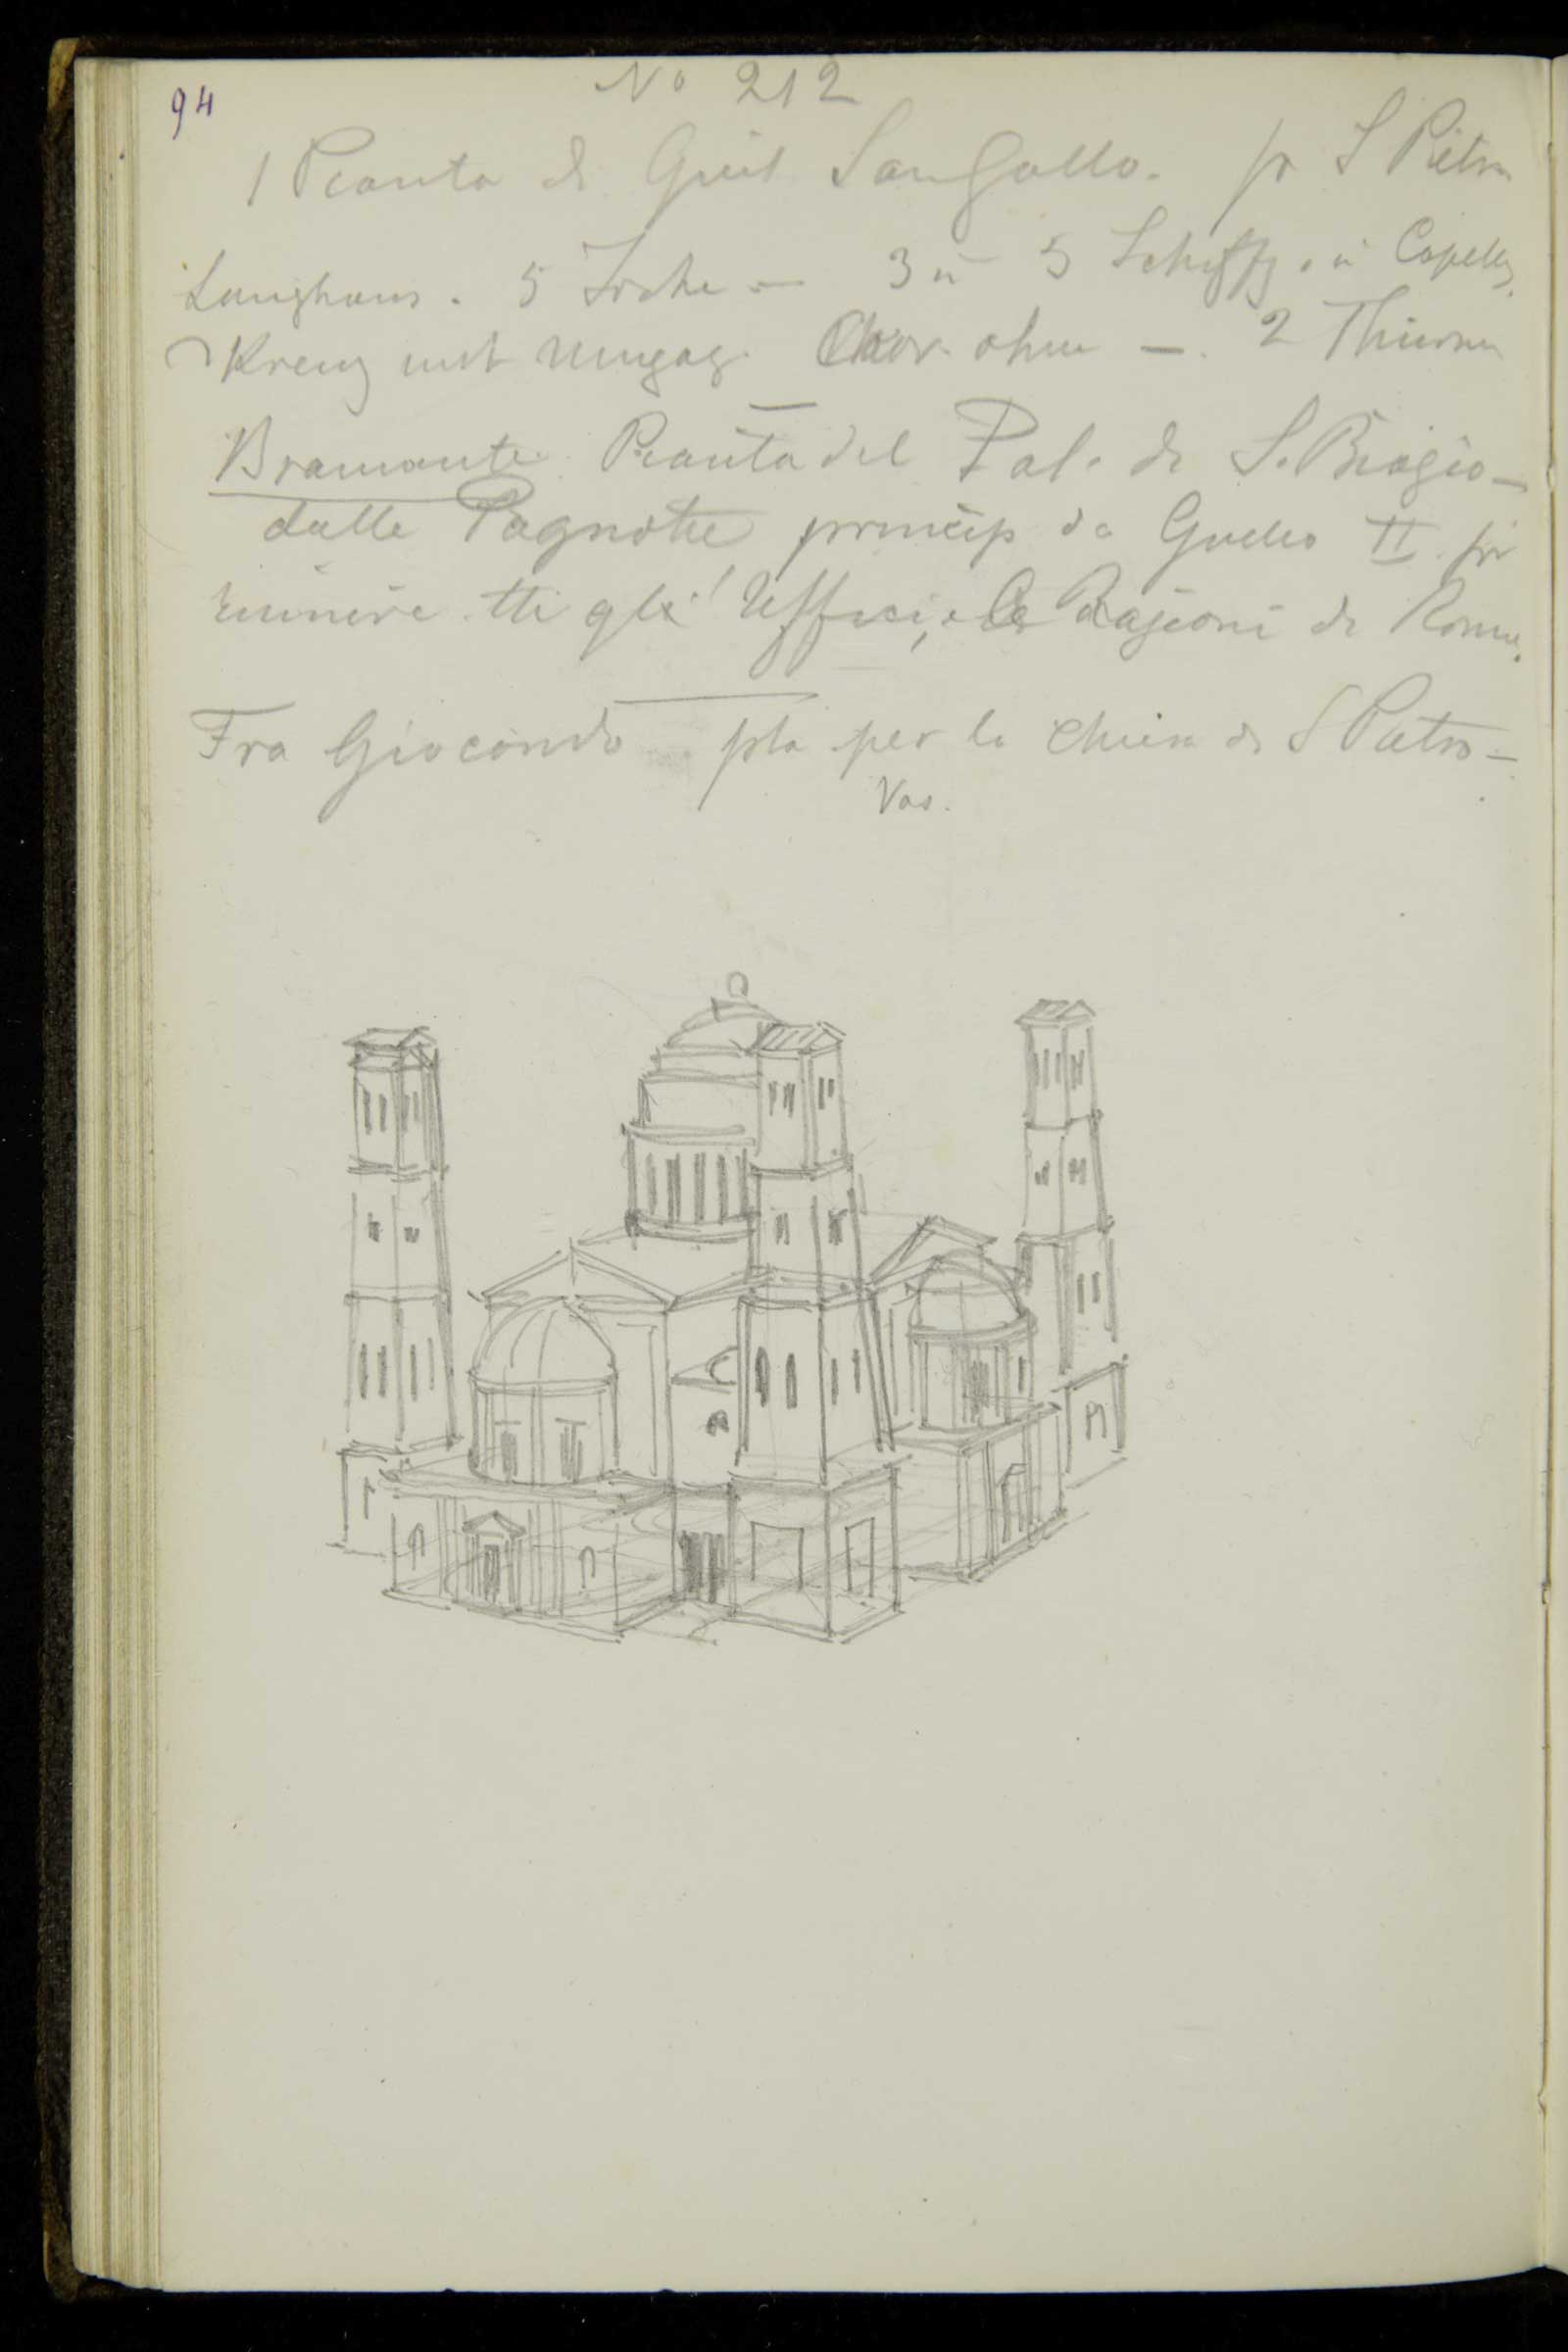 94
No 212
1 Pianta di Giul SanGallo. pr S Pietro
Langhaus. 5 Joche — 3 u 5 Schiffg. u Capell,
Kreuz mit Umgag. Chor ohne —. 2 Thürme
Bramante Pianta del Pal. di S. Biagio —
dalle Pagnotte princip da Guilio II. pr
riunire tti gli Uffici, e le Ragioni di Roma.
Fra Giocondo pta per la chiesa di S Pietro —
Vas.